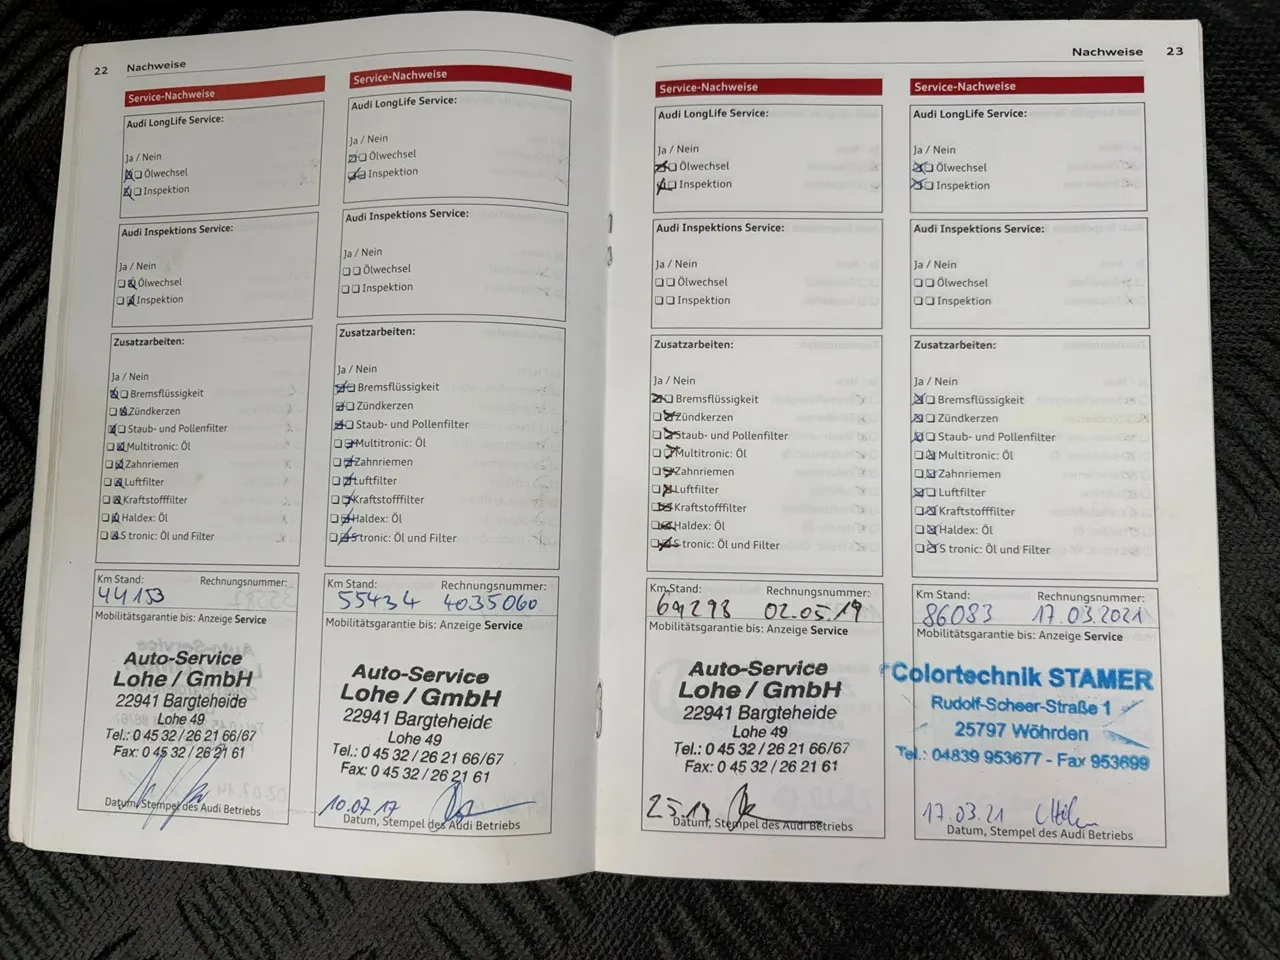 22 Nachweise
Service-Nachweise
Audi LongLife Service:
Ja / Nein
Ölwechsel
Inspektion
Audi Inspektions Service:
Ja / Nein
Ölwechsel
Inspektion
Zusatzarbeiten:
Ja / Nein
Bremsflüssigkeit
Zündkerzen
Staub- und Pollenfilter
Multitronic: Öl
Zahnriemen
Luftfilter
Kraftstofffilter
Haldex: Öl
S tronic: Öl und Filter
Km Stand: Rechnungsnummer:
44153
Mobilitätsgarantie bis: Anzeige Service
Auto-Service
Lohe / GmbH
22941 Bargteheide
Lohe 49
Tel.: 0 45 32 / 26 21 66/67
Fax: 0 45 32 / 26 21 61
Datum, Stempel des Audi Betriebs
Service-Nachweise
Audi LongLife Service:
Ja / Nein
Ölwechsel
Inspektion
Audi Inspektions Service:
Ja / Nein
Ölwechsel
Inspektion
Zusatzarbeiten:
Ja / Nein
Bremsflüssigkeit
Zündkerzen
Staub- und Pollenfilter
Multitronic: Öl
Zahnriemen
Luftfilter
Kraftstofffilter
Haldex: Öl
S tronic: Öl und Filter
Km Stand: Rechnungsnummer:
55434 4035060
Mobilitätsgarantie bis: Anzeige Service
Auto-Service
Lohe / GmbH
22941 Bargteheide
Lohe 49
Tel.: 0 45 32 / 26 21 66/67
Fax: 0 45 32 / 26 21 61
10.07.17
Datum, Stempel des Audi Betriebs
Nachweise 23
Service-Nachweise
Audi LongLife Service:
Ja / Nein
Ölwechsel
Inspektion
Audi Inspektions Service:
Ja / Nein
Ölwechsel
Inspektion
Zusatzarbeiten:
Ja / Nein
Bremsflüssigkeit
Zündkerzen
Staub- und Pollenfilter
Multitronic: Öl
Zahnriemen
Luftfilter
Kraftstofffilter
Haldex: Öl
S tronic: Öl und Filter
Km Stand: Rechnungsnummer:
02.05.19
Mobilitätsgarantie bis: Anzeige Service
Auto-Service
Lohe / GmbH
22941 Bargteheide
Lohe 49
Tel.: 0 45 32 / 26 21 66/67
Fax: 0 45 32 / 26 21 61
2.5.19
Datum, Stempel des Audi Betriebs
Service-Nachweise
Audi LongLife Service:
Ja / Nein
Ölwechsel
Inspektion
Audi Inspektions Service:
Ja / Nein
Ölwechsel
Inspektion
Zusatzarbeiten:
Ja / Nein
Bremsflüssigkeit
Zündkerzen
Staub- und Pollenfilter
Multitronic: Öl
Zahnriemen
Luftfilter
Kraftstofffilter
Haldex: Öl
S tronic: Öl und Filter
Km Stand: Rechnungsnummer:
86083 17.03.2021
Mobilitätsgarantie bis: Anzeige Service
Colortechnik STAMER
Rudolf-Scheer-Straße 1
25797 Wöhrden
Tel.: 04839 953677 - Fax 953699
17.03.21
Datum, Stempel des Audi Betriebs